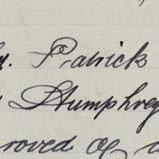 Patrick
Humphrey
roved of